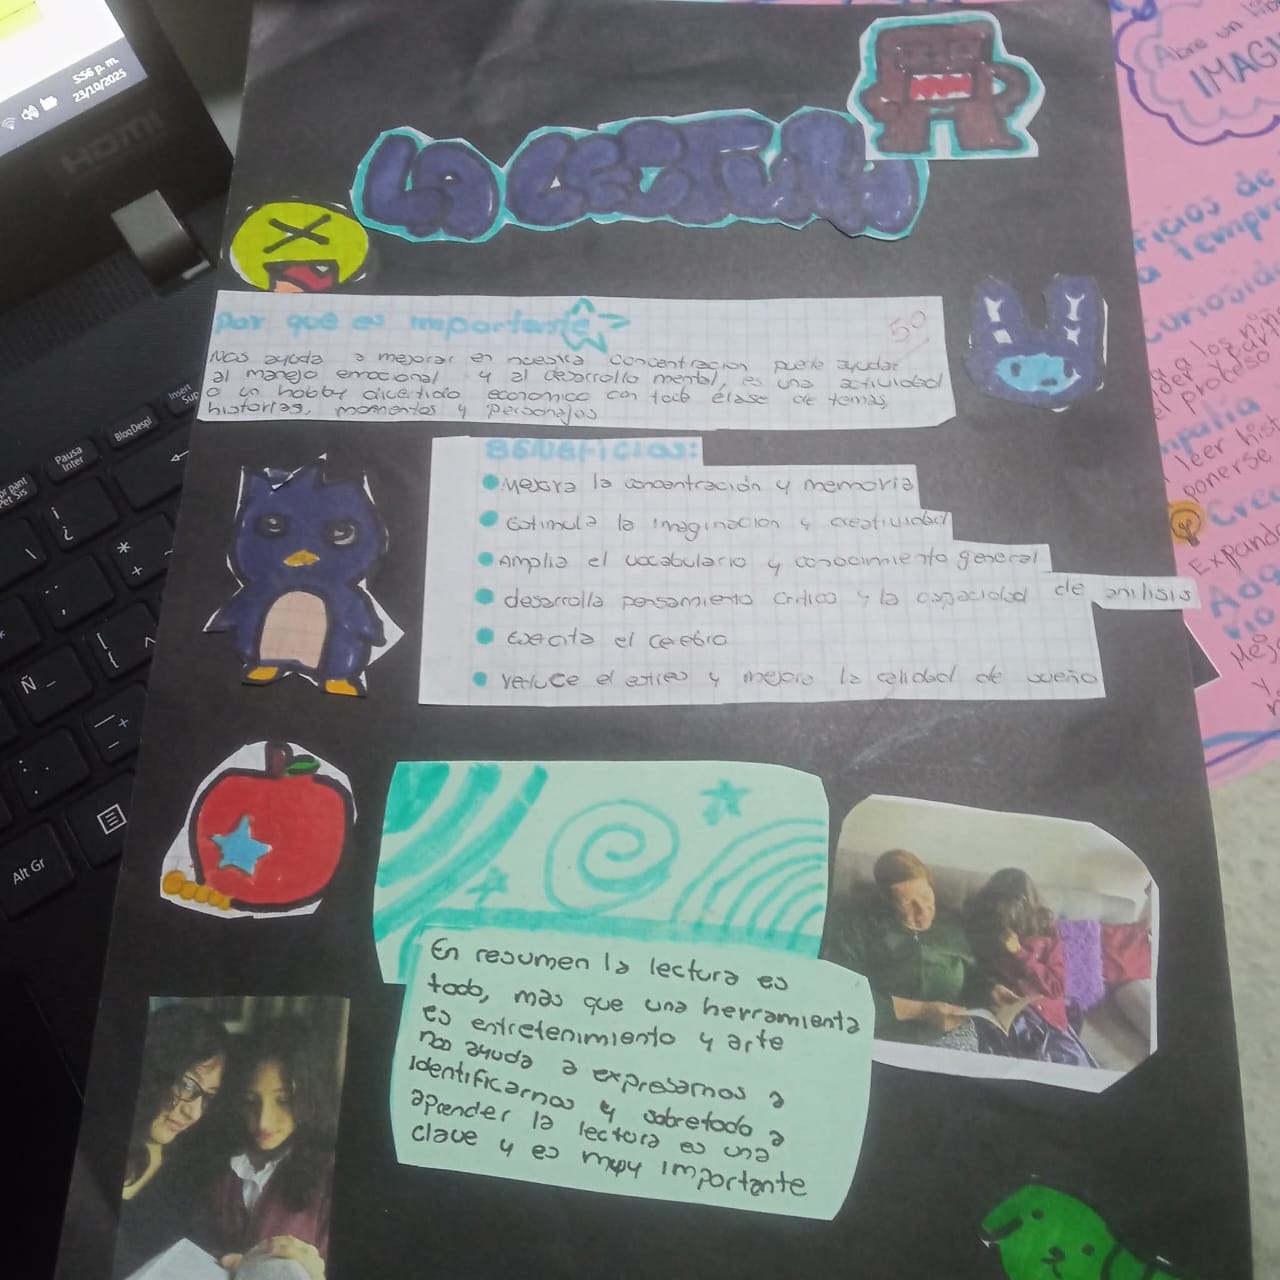 5:56 p. m.
23/10/2025
HDMI
LA LECTURA
Por que es importante
50
Nos ayuda a mejorar en nuestra concentracion puede ayudar
al manejo emocional y al desarrollo mental, es una actividad
o un hobby divertido economico con todo clase de temas,
historias, momentos y personajes
BENEFICIOS:
Mejora la concentración y memoria
Estimula la imaginacion y creatividad
Amplia el vocabulario y conocimiento general
desarrolla pensamiento critico y la capacidad de anilisis
Ejercita el cerebro
reduce el estres y mejora la calidad de sueño
En resumen la lectura es
todo, mas que una herramienta
es entretenimiento y arte
nos ayuda a expresarnos a
identificarnos y sobretodo a
aprender la lectura es una
clave y es muy importante
Abre un
IMAGI
ficios de
a tempr
Curiosid
a los niñ
el proceso
mpatia
leer hist
ponerse
Crea
Expande
Mejo
y
Insert
Sup
Pausa
Inter
BloqDespl
Impr pant
Pet Sis
Ñ
Alt Gr